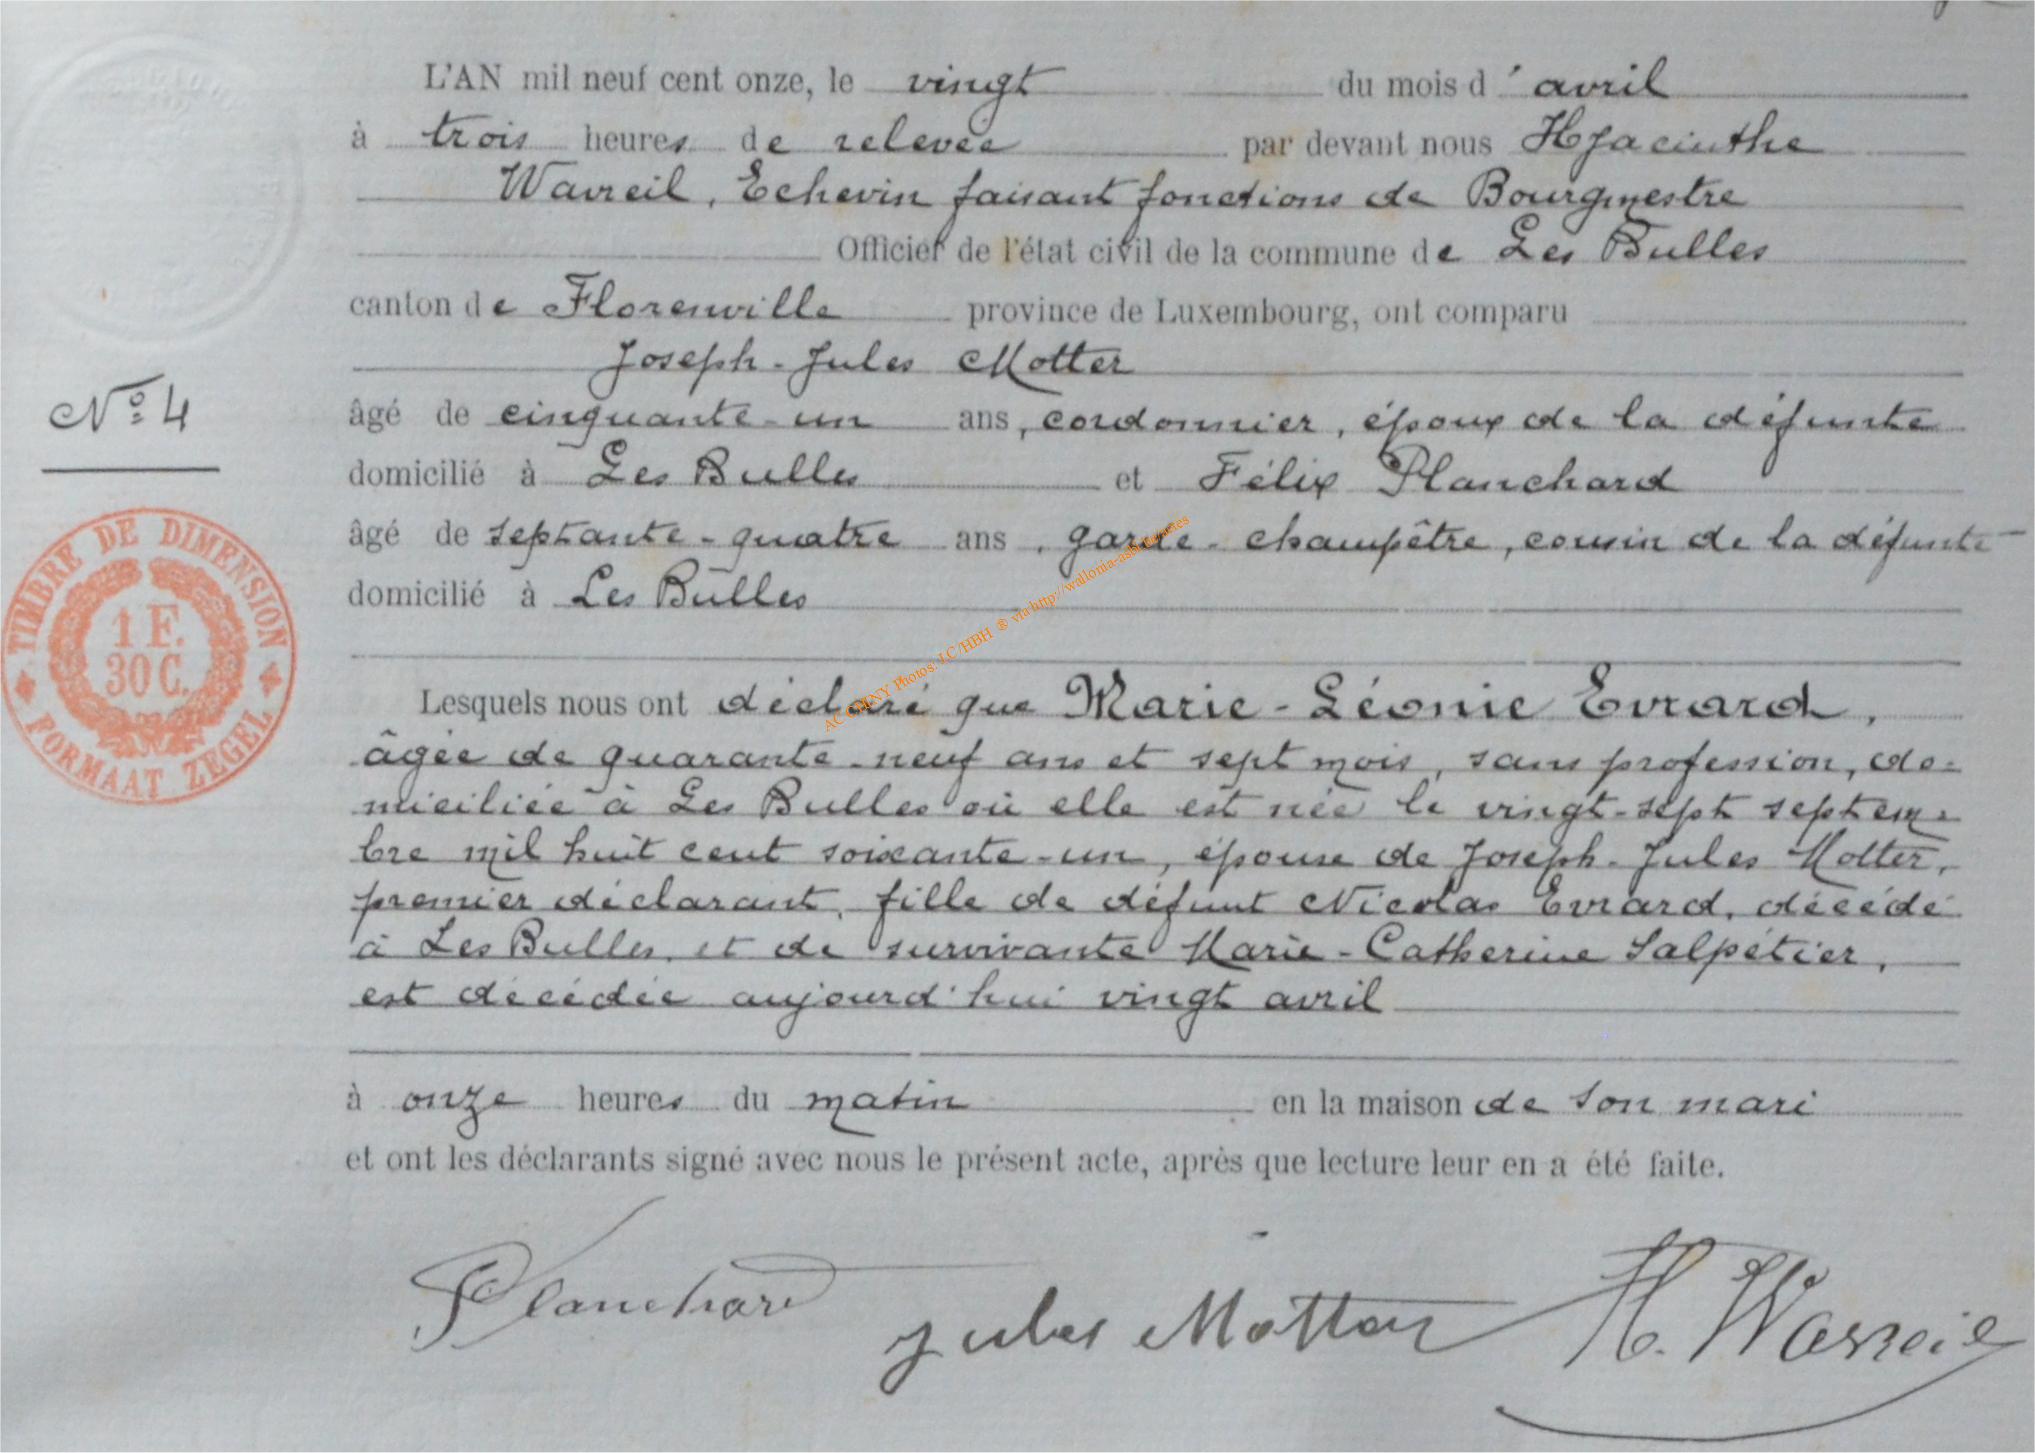 L'AN mil neuf cent onze, le vingt du mois d'avril
à trois heures de relevée par devant nous Hyacinthe
Wavreil, Echevin faisant fonctions de Bourgmestre
Officier de l'état civil de la commune de Les Bulles
canton de Florenville province de Luxembourg, ont comparu
Joseph-Jules Motter
N° 4
âgé de cinquante-un ans, cordonnier, époux de la défunte
domicilié à Les Bulles et Félix Planchard
âgé de septante-quatre ans, garde-champêtre, cousin de la défunte
domicilié à Les Bulles
TIMBRE DE DIMENSION
1 F.
30 C.
FORMAAT ZEGEL
Lesquels nous ont déclaré que Marie-Léonie Evrard,
âgée de quarante-neuf ans et sept mois, sans profession, do=
miciliée à Les Bulles où elle est née le vingt-sept septem=
bre mil huit cent soixante-un, épouse de Joseph-Jules Motter,
premier déclarant, fille de défunt Nicolas Evrard, décédé
à Les Bulles, et de survivante Marie-Catherine Salpétier,
est décédée aujourd'hui vingt avril
à onze heures du matin en la maison de son mari
et ont les déclarants signé avec nous le présent acte, après que lecture leur en a été faite.
Planchard Jules Motter H. Wavreil
AC CHINY Photos: J.C/HBH ® via http://wallonia-asbl